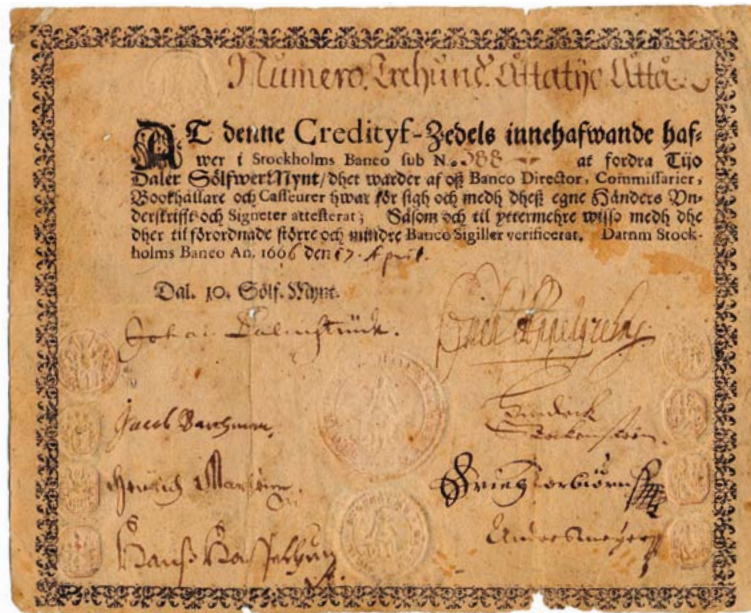 Numero. Trehund. Åttatijo Åtta.
AT denne Credityf-Zedels innehafwande haf-
wer i Stockholms Banco sub N.o 388 at fordra Tijo
Daler Sölfwer Mynt/ dhet warder af oß Banco Director, Commissarier,
Bookhållare och Casseurer hwar för sigh och medh dheß egne Händers Vn-
derskrifft och Signeter attesterat; Såsom och til yttermehre wisso medh dhe
dher til förordnade större och mindre Banco Sigiller verificerat. Datum Stock-
holms Banco An. 1666 den 17. April.
Dal. 10. Sölf. Mynt.
Johan Palmstruch.
Jacob
Hendrick
Hanß